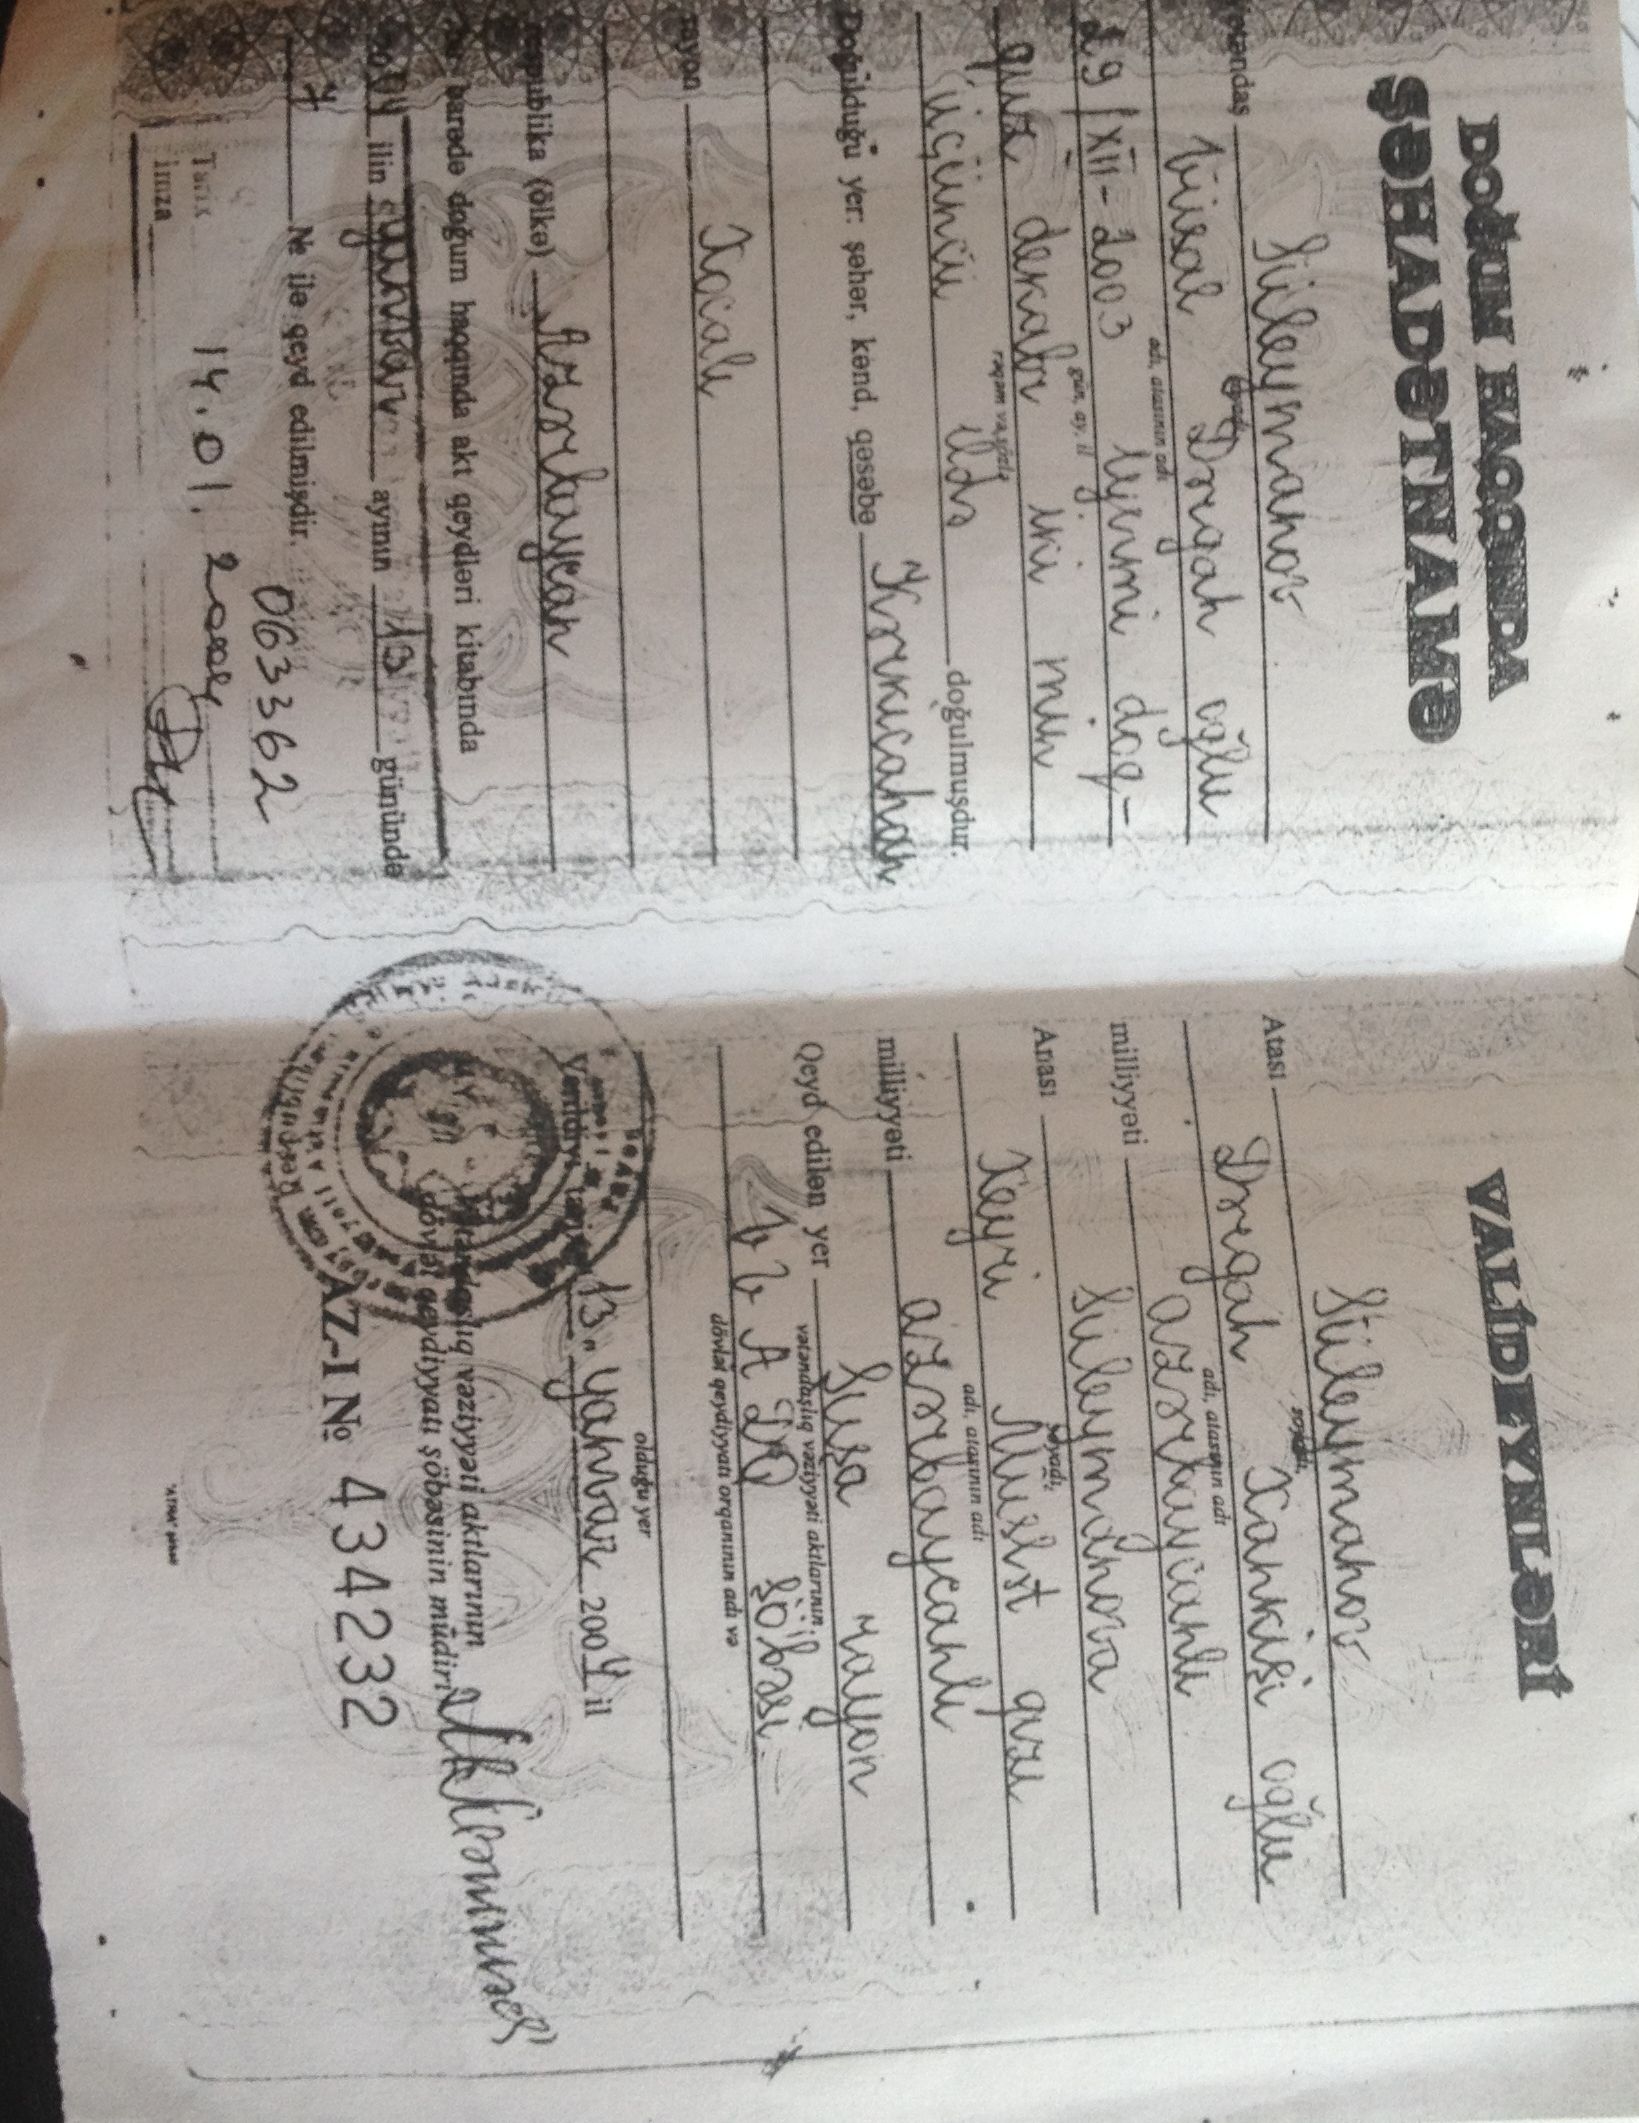 DOĞUM HAQQINDA
ŞƏHADƏTNAMƏ
Süleymanov
soyadı,
Vüsal Dərgah oğlu
adı, atasının adı
29/XII-2003 iyirmi doq-
gün, ay, il
quz dekabr iki min
rəqəm və sözlə
üçüncü ildə doğulmuşdur.
Doğulduğu yer: şəhər, kənd, qəsəbə Kərkicahan
rayon Xocalı
respublika (ölkə) Azərbaycan
barədə doğum haqqında akt qeydləri kitabında
ilin yanvar ayının 13 günündə
7 № ilə qeyd edilmişdir.
0633362
Tarix 14.01.2004
imza
VALİDEYNLƏRİ
Süleymanov
Atası
soyadı,
Dərgah Xankişi oğlu
adı, atasının adı
milliyyəti azərbaycanlı
Anası Süleymanova
soyadı,
Xeyri Musa qızı
adı, atasının adı
milliyyəti azərbaycanlı
Qeyd edilən yer Şuşa rayon
vətəndaşlıq vəziyyəti aktlarının
VVADQ şöbəsi
dövlət qeydiyyatı orqanının adı və
olduğu yer
13 yanvar 2004 il
vətəndaşlıq vəziyyəti aktlarının
dövlət qeydiyyatı şöbəsinin müdiri
AZ-I № 434232